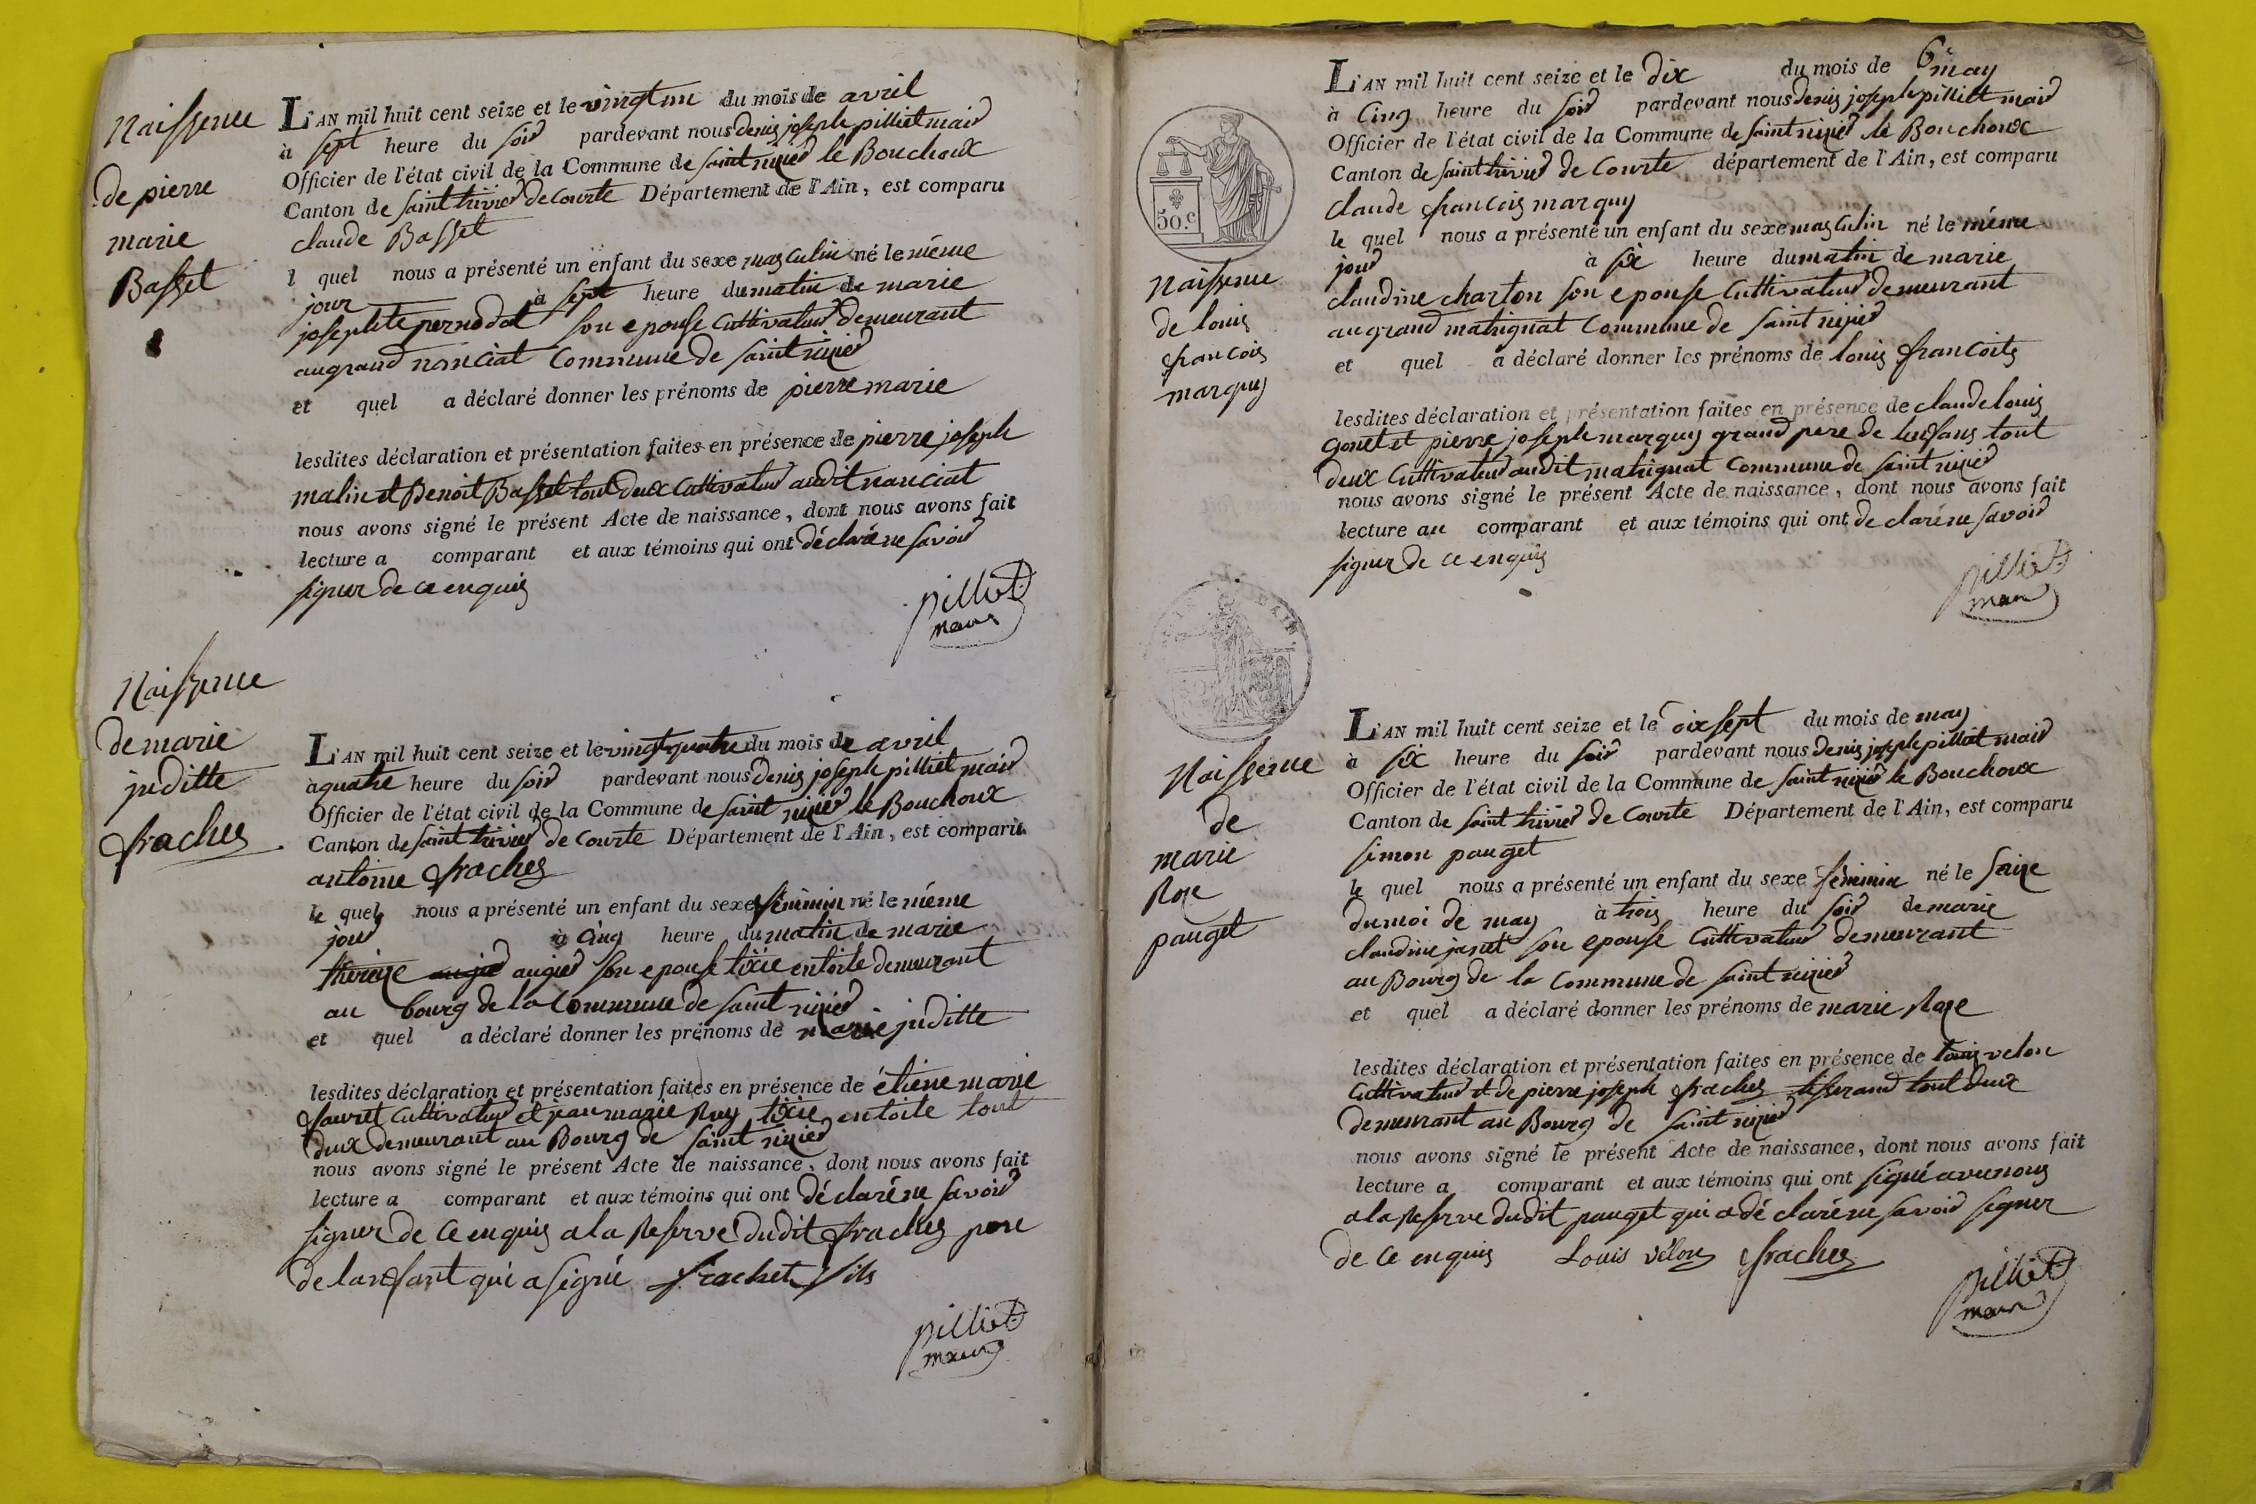 Naissence
de pierre
marie
Basset
L'AN mil huit cent seize et le vingt un du mois de avril
à sept heure du soir pardevant nous denis joseph pilliet mair
Officier de l'état civil de la Commune de saint nizier le Bouchoux
Canton de saint trivier de Courte Département de l'Ain, est comparu
claude Basset
l quel nous a présenté un enfant du sexe masculin né le même
jour à sept heure du matin de marie
josephte pernodat son epouse Cultivateur demeurant
au grand nanciat Commune de saint nizier
et quel a déclaré donner les prénoms de pierre marie
lesdites déclaration et présentation faites en présence de pierre joseph
malin et Benoit Basset tout deux Cultivateur audit nanciat
nous avons signé le présent Acte de naissance, dont nous avons fait
lecture a comparant et aux témoins qui ont déclaré ne savoir
signer de ce enquis
pilliet
maire
Naissence
de marie
juditte
frachet
L'AN mil huit cent seize et le vingt quatre du mois de avril
à quatre heure du soir pardevant nous denis joseph pilliet mair
Officier de l'état civil de la Commune de saint nizier le Bouchoux
Canton de saint trivier de Courte Département de l'Ain, est comparu
antoine frachet
le quel nous a présenté un enfant du sexe féminin né le même
jour à Cinq heure du matin de marie
thereze augier augier son epouse tixie en toile demeurant
au bourg de la Commune de saint nizier
et quel a déclaré donner les prénoms de marie juditte
lesdites déclaration et présentation faites en présence de étiene marie
favret Cultivateur et jean marie Ruy tixie en toile tout
deux demeurant au Bourg de saint nizier
nous avons signé le présent Acte de naissance, dont nous avons fait
lecture a comparant et aux témoins qui ont déclaré ne savoir
signer de ce enquis a la Reserve dudit frachet pere
de lanfant qui a signé frachet fils
pilliet
maire
6e
L'AN mil huit cent seize et le dix du mois de may
à Cinq heure du soir pardevant nous denis joseph pilliet mair
Officier de l'état civil de la Commune de saint nizier le Bouchoux
Canton de saint trivier de Courte département de l'Ain, est comparu
claude francois marquy
le quel nous a présenté un enfant du sexe masculin né le même
jour à six heure du matin de marie
claudine charton son epouse Cultivateur demeurant
au grand matrignat Commune de saint nizier
et quel a déclaré donner les prénoms de louis francoits
lesdites déclaration et présentation faites en présence de claude louis
gonet et pierre joseph marquy grand pere de lenfans tout
deux Cultivateur audit matrignat Commune de saint nizier
nous avons signé le présent Acte de naissance, dont nous avons fait
lecture au comparant et aux témoins qui ont de claré ne savoir
signer de ce enquis
pilliet
maire
50.c
Naissence
de louis
francois
marquy
Naissence
de
marie
Roze
pauget
L'AN mil huit cent seize et le dix sept du mois de may
à six heure du soir pardevant nous denis joseph pilliet mair
Officier de l'état civil de la Commune de saint nizier le Bouchoux
Canton de saint trivier de Courte Département de l'Ain, est comparu
simon pauget
le quel nous a présenté un enfant du sexe féminin né le seize
du moi de may à trois heure du soir de marie
claudine janet son epouse Cultivateur demeurant
au Bourg de la Commune de saint nizier
et quel a déclaré donner les prénoms de marie Roze
lesdites déclaration et présentation faites en présence de louis velon
Cultivateur et de pierre joseph frachet tisserand tout deux
demeurant au Bourg de saint nizier
nous avons signé le présent Acte de naissance, dont nous avons fait
lecture a comparant et aux témoins qui ont signé avec nous
a la Reserve dudit pauget qui a dé claré ne savoir signer
de ce enquis Louis vélon frachet
pilliet
maire